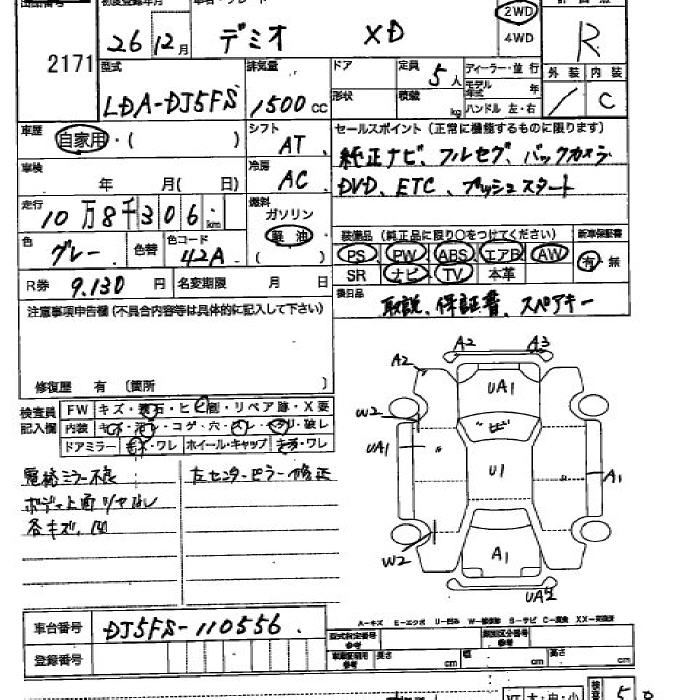 出品番号 初度登録年月 車名・グレード 2WD
2171 26 12月 デミオ XD 4WD R
型式 排気量 ドア 定員 5人 ディーラー・並行 外装 内装
LDA-DJ5FS 1500cc 形状 積載 kg モデル年式 年 / C
ハンドル 左・右
車歴 自家用・( ) シフト AT セールスポイント(正常に機能するものに限ります)
車検 年 月( 日) 冷房 AC 純正ナビ、フルセグ、バックカメラ
DVD、ETC、プッシュスタート
走行 10万8千306km 燃料 ガソリン
軽油
( )
装備品(純正品に限り○をつけてください) 新車保証書
色 グレー 色替 色コード 42A PS PW ABS エアB AW 有・無
SR ナビ TV 本革
R券 9.130円 名変期限 月 日 後日品
取説、保証書、スペアキー
注意事項申告欄(不具合内容等は具体的に記入して下さい)
修復歴 有 (箇所 )
検査員記入欄 FW キズ・飛石・ヒビ割・リペア跡・X要
内装 キズ・汚レ・コゲ・穴・スレ・ヤブリ・破レ
ドアミラー キズ・ワレ ホイール・キャップ キズ・ワレ
電格ミラー不良 左センターピラー修正
ボデー上面ツヤなし
各キズ、凹
A2 A3
A2 UA1
W2 ヒ"
UA1 U1 A1
W2 A1
UA2
A-キズ E-エクボ U-凹み W-補修跡 S-サビ C-腐食 XX-交換済
車台番号 DJ5FS-110556
登録番号
型式指定番号 参考 類別区分番号 参考
車両証明用 参考 長さ cm 幅 cm 高さ cm
大・中・小 5